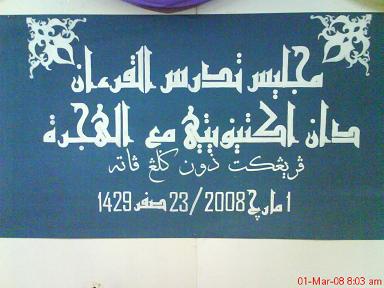 مجليس تدرس القرءان
دان اكتيۏيتي مع الهجرة
ڤريڠكت ذون ݢلڠ ڤاته
1 مارچ 2008/23 صفر 1429
01-Mar-08 8:03 am